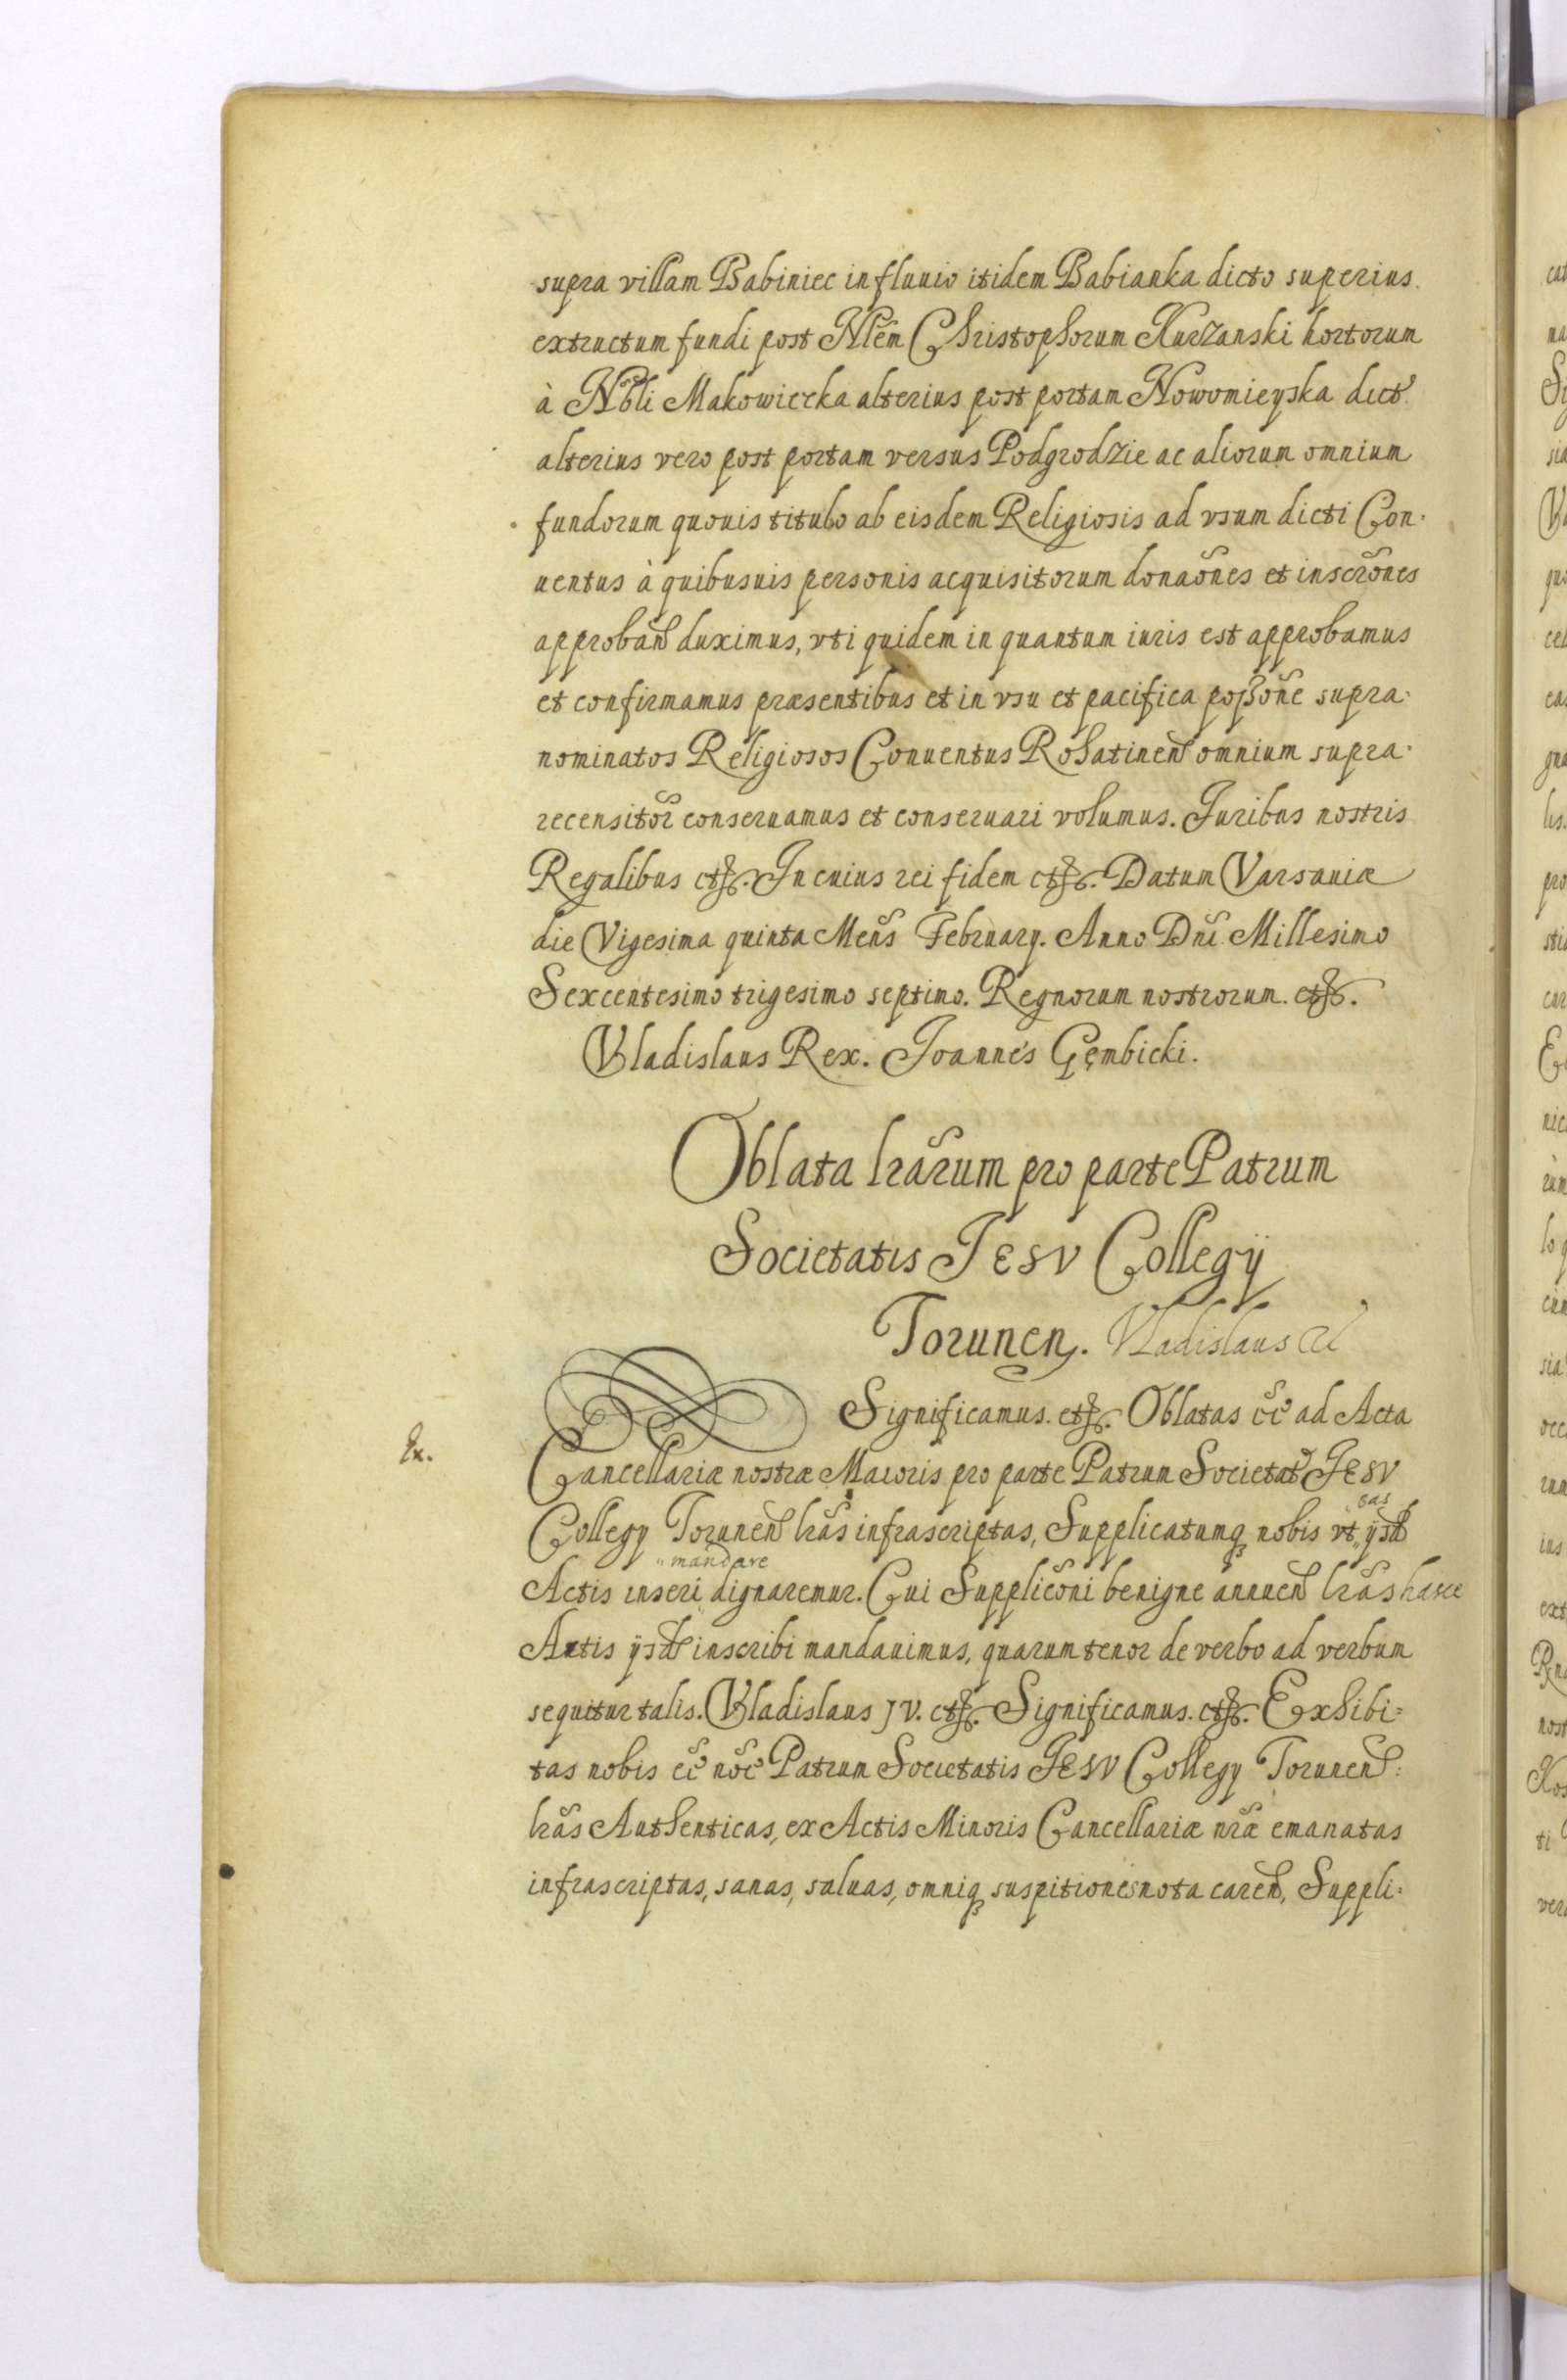 supra villam Babiniec in fluuio itidem Babianka dicto superius
extructum fundi post Nlem Christophorum Kurzanski hortorum
à Nbli Makowiecka alterius post portam Nowomieyska dict
alterius vero post portam versus Podgrodzie ac aliorum omnium
fundorum quouis titulo ab eisdem Religiosis ad vsum dicti Con-
uentus à quibusuis personis acquisitorum donaões et inscrões
approbañ duximus, vti quidem in quantum iuris est approbamus
et confirmamus præsentibus et in vsu et pacifica poßõne supra-
nominatos Religiosos Conuentus Rohatineñ omnium supra-
recensitor̃ conseruamus et conseruari volumus. Juribus nostris
Regalibus etc. In cuius rei fidem etc. Datum Varsauiæ
die Vigesima quinta Meñs February. Anno Dñi Millesimo
Sexcentesimo trigesimo septimo. Regnorum nostrorum. etc.
Vladislaus Rex. Joannes Gęmbicki.
Oblata lrãrum pro parte Patrum
Societatis JESV Collegÿ
Torunen. Vladislaus
Significamus. etc. Oblatas ad Acta
Ex.
Cancellariæ nostræ Maioris pro parte Patrum Societat JESV
Collegy Toruneñ lrãs infrascriptas, Supplicatumq nobis vt eas ijsd
Actis inseri mandare dignaremur. Cui Supplicõni benigne annueñ lrãs hasce
Actis ijsd inscribi mandauimus, quarum tenor de verbo ad verbum
sequitur talis. Vladislaus IV. etc. Significamus. etc. Exhibi=
tas nobis eẽ noẽ Patrum Societatis JESV Collegy Toruneñ:
lrãs Authenticas, ex Actis Minoris Cancellariæ nr̃æ emanatas
infrascriptas, sanas, saluas, omniq suspitionis nota careñ, Suppli=